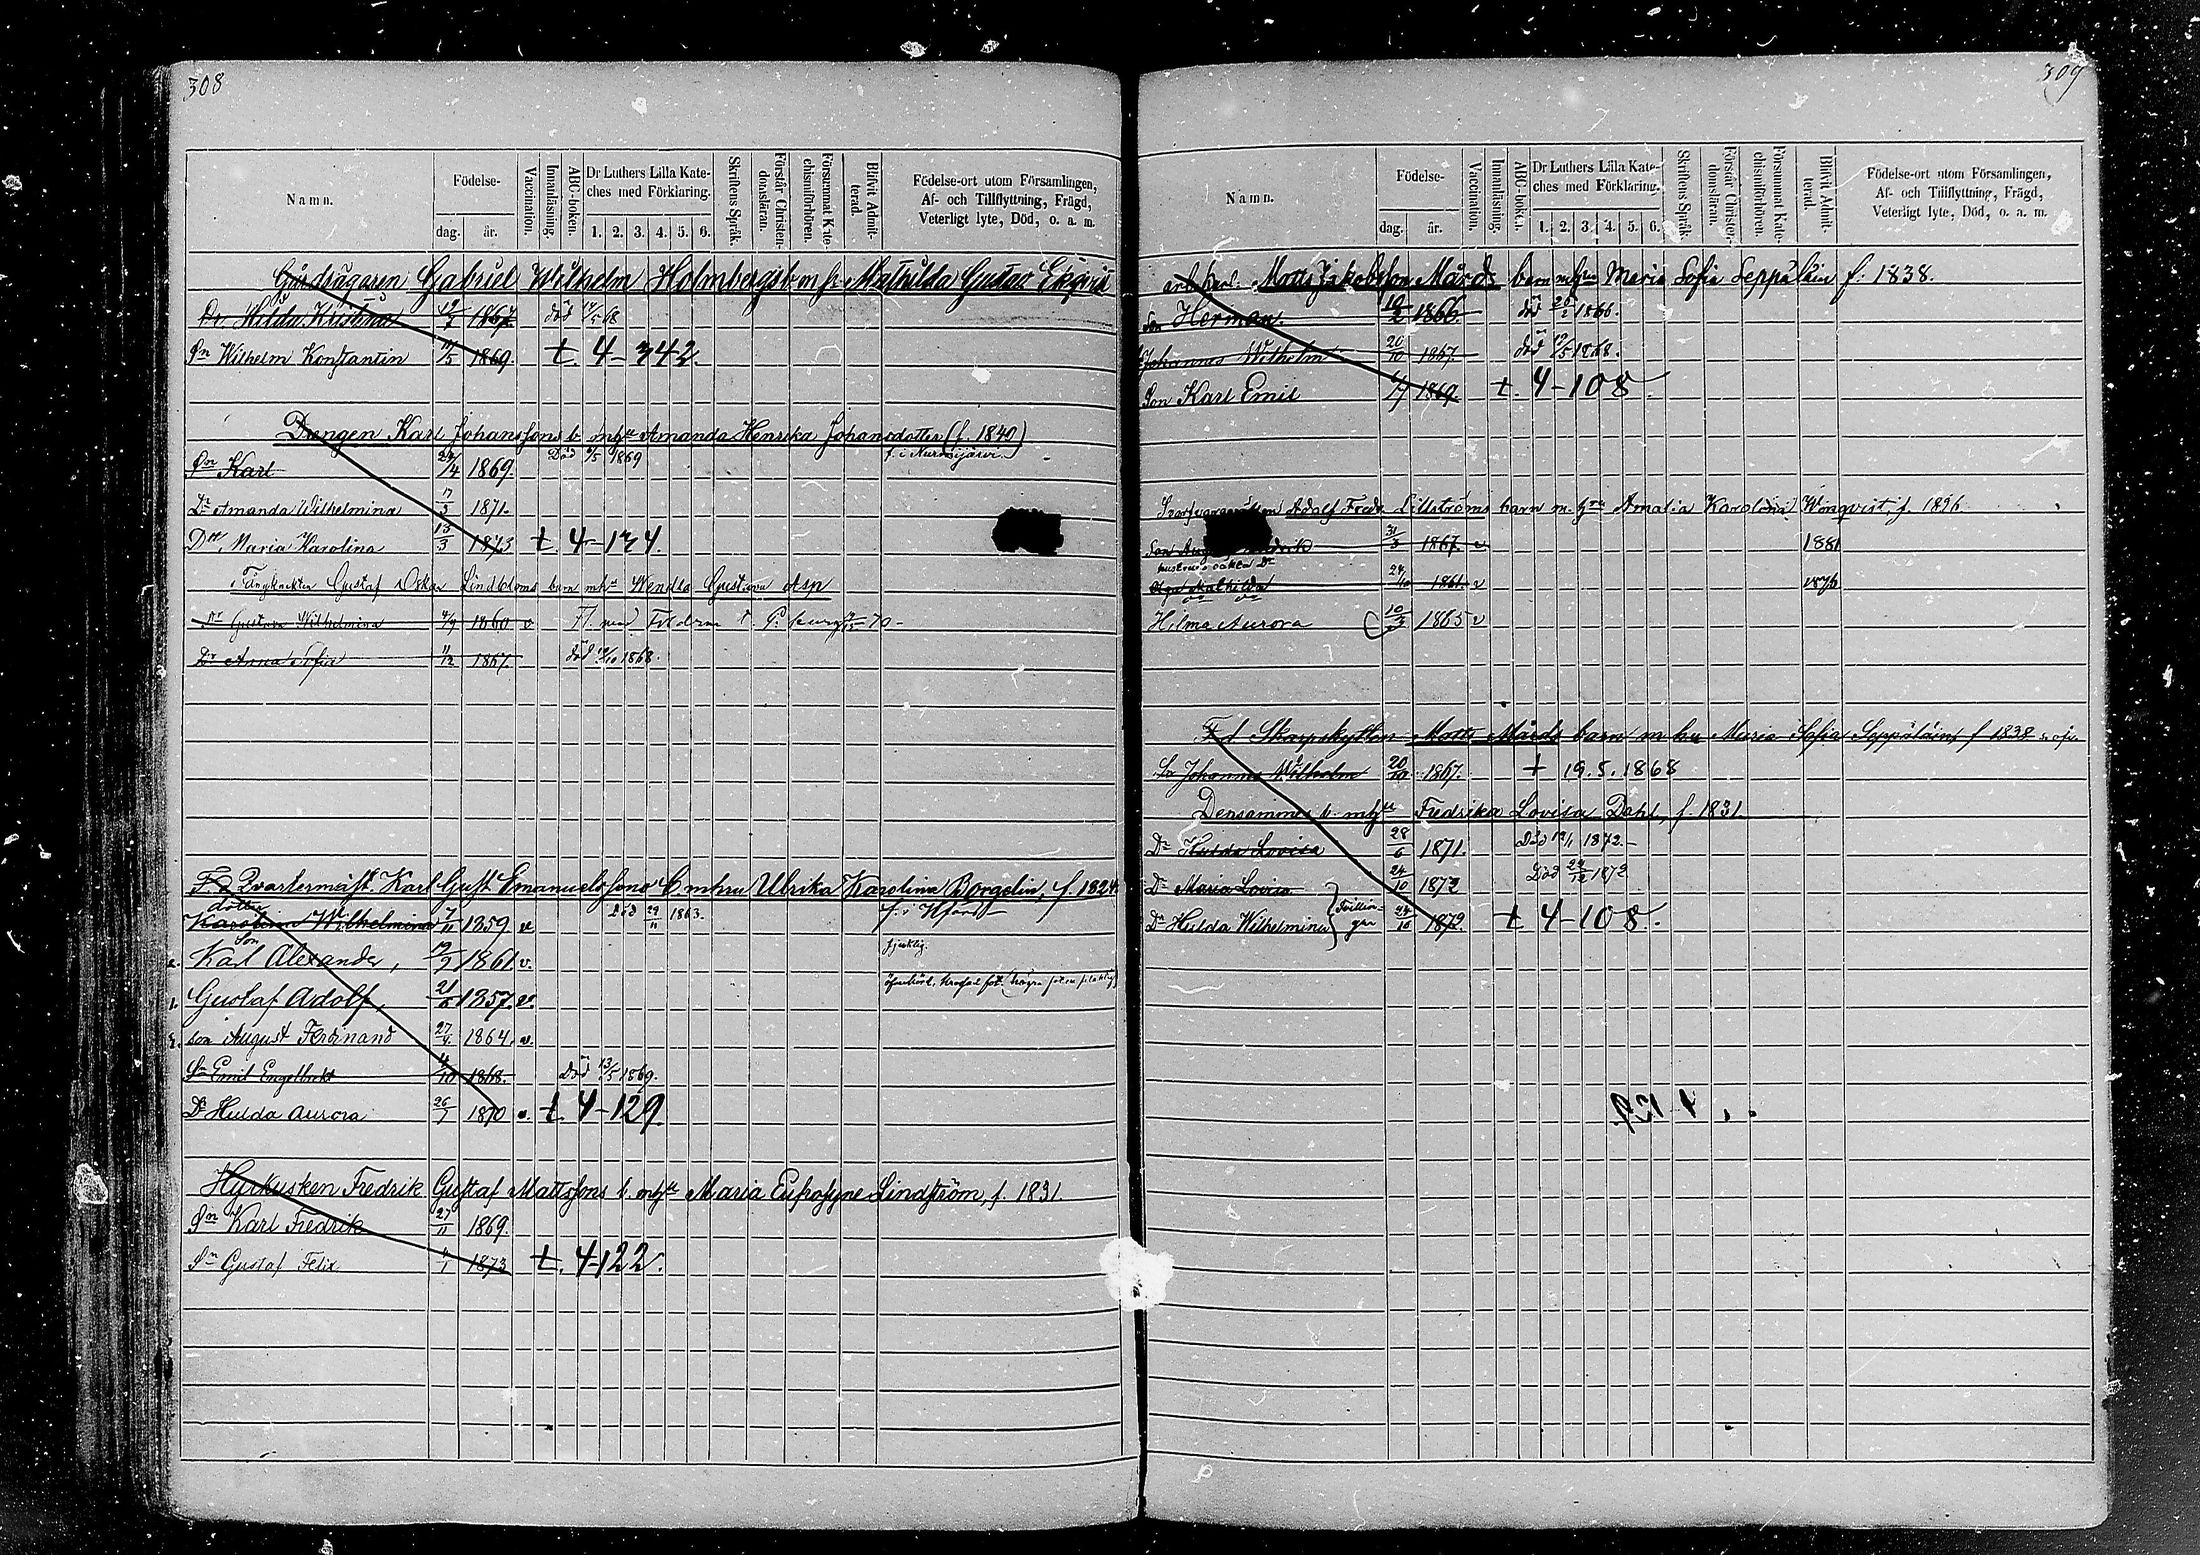 308
Namn.
Födelse-
dag. år.
Vaccination.
Innanläsning.
ABC-boken.
Dr Luthers Lilla Kate-
ches med Förklaring.
1. 2. 3. 4. 5. 6.
Skriftens Språk.
Förstår Christen-
domsläran.
Försummat Kate-
chismiförhören.
Blifvit Admit-
terad.
Födelse-ort utom Församlingen,
Af- och Tillflyttning, Frägd,
Veterligt lyte, Död, o. a. m.
Gårdsägaren Gabriel Wilhelm Holmbergs b. m h. Mathilda Gustava
Dr. Hilda Kristina 1867. död 68
Sn Wilhelm Konstantin 1869. t. 4-343.
Drengen Karl Johanssons b. mhu Amanda Henrika Johansdotter (f. 1840)
Sn Karl 1869. Död 1869 f. i Nurmijärvi.
Dr Amanda Wilhelmina 1871.
Dtr Maria Karolina 13/3 1873 t. 4-134.
Gustaf Oskar Lindbloms barn mhu Wendla Gustava Asp
Dr Gustava Wilhelmina 4/9 1860 v
Dr Anna Sofia 11/12 1867. död 1868.
Fd Qvartermäst. Karl Gust Emanuelssons b mhru Ulrika Karolina Borgelin, f. 1824
dotter
Karolina Wilhelmina 7/11 1859 v Död 29/11 1863. f. i Hfors
son
Karl Alexander, 1861. v. sjuklig.
Gustaf Adolf, 1857. v.
son August Ferdinand 27/4 1864. v.
Sn Emil Engelbrekt 4/10 1868. Död 13/5 1869.
Dr Hulda Aurora 26/1 1870 v. t. 4-129
Hyrkusken Fredrik Gustaf Mattssons b. mhu Maria Eufrosyne Lindström, f. 1831.
Sn Karl Fredrik 27/11 1869.
Sn Gustaf Felix 1873 t. 4-122.
309
Namn.
Födelse-
dag. år.
Vaccination.
Innanläsning.
ABC-boken.
Dr Luthers Lilla Kate-
ches med Förklaring.
1. 2. 3. 4. 5. 6.
Skriftens Språk.
Förstår Christen-
domsläran.
Försummat Kate-
chismiförhören.
Blifvit Admit-
terad.
Födelse-ort utom Församlingen,
Af- och Tillflyttning, Frägd,
Veterligt lyte, Död, o. a. m.
Matts Jakobsson Mårds barn m hru Maria Sofia Seppäläin f. 1838.
Son Herman. 1866. död 1866.
Johannes Wilhelm 20/10 1867. död 19/5 1868.
Son Karl Emil 1869. t. 4-108.
Adolf Fredr. Lillströms barn m. hru Amalia Karolina Wönqvist, f.
Son 31/3 1867. v 1881
hustruns oäkta Dr
Olga Mathilda 1861. v 1876
Hilma Aurora 10/3 1865 v
Fd Skarpskytten Matts Mårds barn m hu Maria Sofia Seppäläin, f 1838
Sn Johannes Wilhelm 20/10 1867. + 19.5.1868
Densammes b. mhu Fredrika Lovisa Dahl, f. 1831.
Dr Hulda Lovisa 28/6 1871. Död 1872.
Dr Maria Lovisa 24/10 1872 Död 1872
Dr Hulda Wilhelmina Tvillin-
gar 24/10 1872. t 4-108.